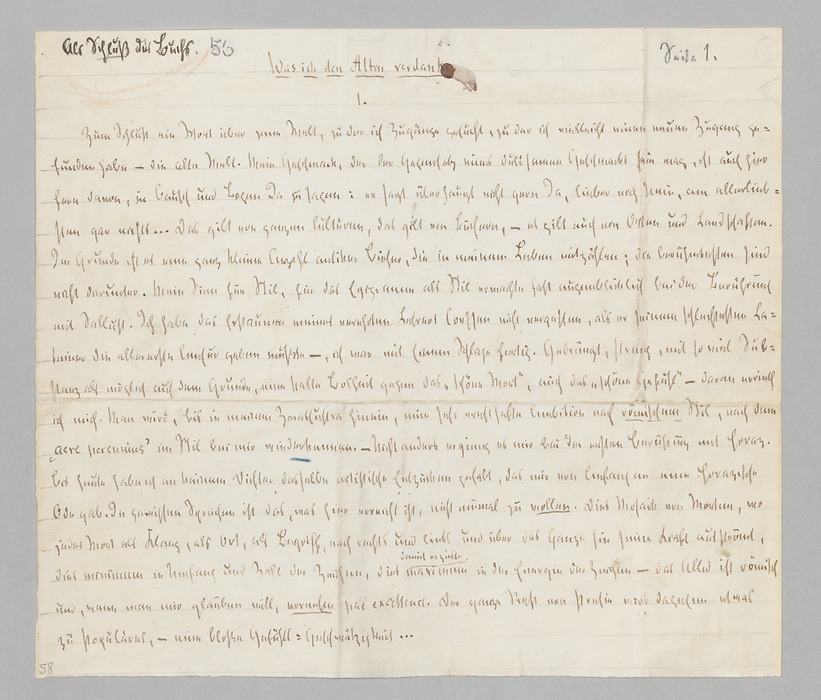 Als Schluß des Buchs. 56
Seite 1.
Was ich den Alten verdanke
1.
Zum Schluß ein Wort über jene Welt, zu der ich Zugänge gesucht, zu der ich vielleicht einen neuen Zugang ge=
funden habe – die alte Welt. Mein Geschmack, der der Gegensatz eines duldsamen Geschmacks sein mag, ist auch hier
fern davon, in Bausch und Bogen Ja zu sagen: er sagt überhaupt nicht gern Ja, lieber noch Nein, am allerlieb=
sten gar nichts... Das gilt von ganzen Culturen, das gilt von Büchern, – es gilt auch von Orten und Landschaften.
Im Grunde ist es eine ganz kleine Anzahl antiker Bücher, die in meinem Leben mitzählen; die berühmtesten sind
nicht darunter. Mein Sinn für Stil, für das Epigramm als Stil erwachte fast augenblicklich bei der Berührung
mit Sallust. Ich habe das Erstaunen meines verehrten Lehrers Corssen nicht vergessen, als er seinem schlechtesten La=
teiner die allererste Censur geben mußte –, ich war mit Einem Schlage fertig. Gedrängt, streng, mit so viel Sub=
stanz als möglich auf dem Grunde, eine kalte Bosheit gegen das „schöne Wort", auch das „schöne Gefühl" – daran errieth
ich mich. Man wird, bis in meinen Zarathustra hinein, eine sehr ernsthafte Ambition nach römischem Stil, nach dem
„aere perennius" im Stil bei mir wiedererkennen. – Nicht anders ergieng es mir bei der ersten Berührung mit Horaz.
Bis heute habe ich an keinem Dichter dasselbe artistische Entzücken gehabt, das mir von Anfang an eine Horazische
Ode gab. In gewissen Sprachen ist das, was hier erreicht ist, nicht einmal zu wollen. Dies Mosaik von Worten, wo
jedes Wort als Klang, als Ort, als Begriff, nach rechts und links und über das Ganze hin seine Kraft ausströmt,
damit erzielte
dies minimum in Umfang und Zahl der Zeichen, dies maximum in der Energie der Zeichen – das Alles ist römisch
und, wenn man mir glauben will, vornehm par excellence. Der ganze Rest von Poesie wird dagegen etwas
zu Populäres, – eine bloße Gefühls=Geschwätzigkeit...
58